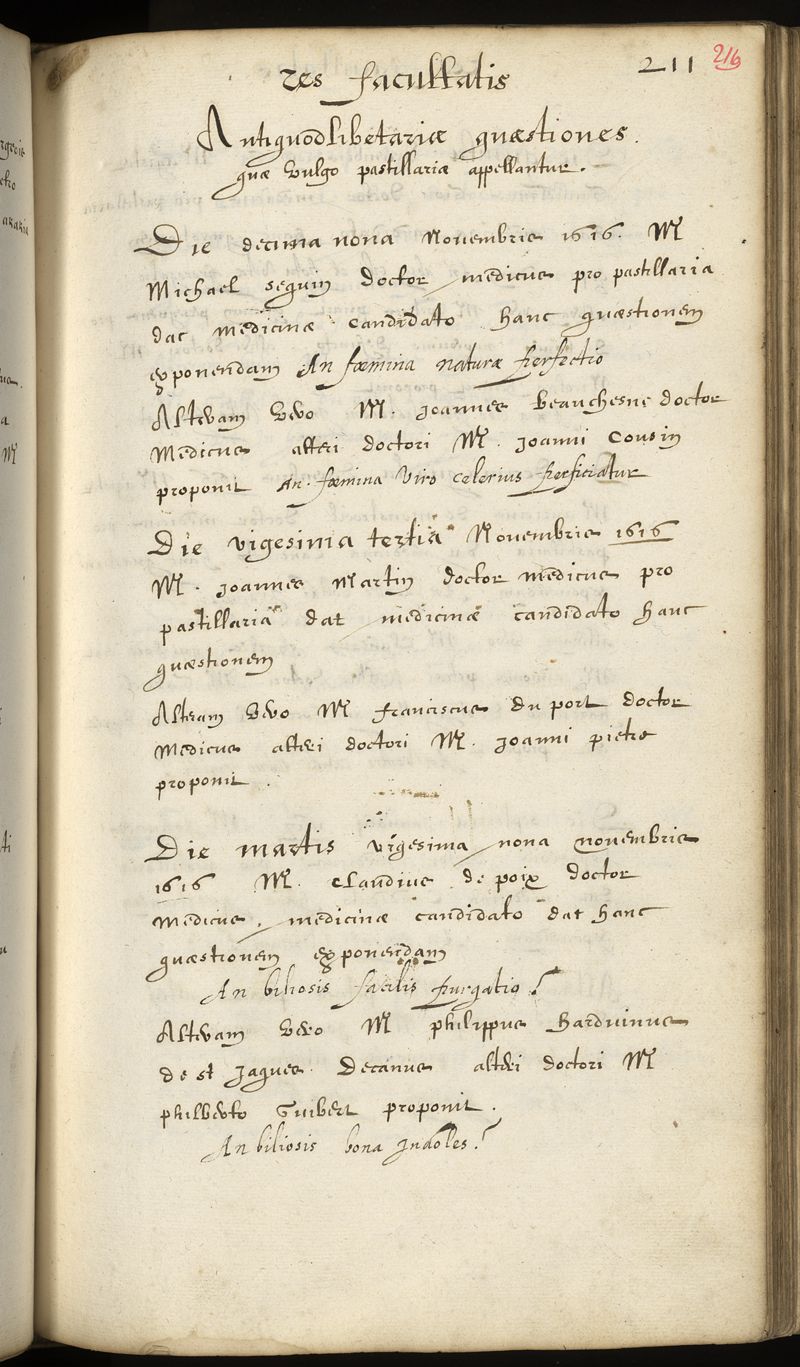 res facultatis 211 216
Antiquodlibetariæ quæstiones.
quæ vulgo pastillariæ appellantur.
Die decima nona Novembris 1616. M
Michael seguin doctor medicus pro pastillaria
dat medicinæ candidato hanc quæstionem
exponendam An fœmina naturæ perfectio
Alteram vero M. Joannes Beauchesne doctor
Medicus alteri doctori M. Joanni Cousin
proponit An fœmina viro celerius perficiatur
Die vigesima tertia Novembris 1616
M. Joannes Martin doctor medicus pro
pastillaria dat medicinæ candidato hanc
quæstionem
Alteram vero M franciscus du port doctor
Medicus alteri doctori M. Joanni pietre
proponit.
Die martis vigesima nona novembris
1616 M. Claudius de poix doctor
Medicus, medicinæ candidato dat hanc
quæstionem exponendam
An biliosis facilis purgatio?
Alteram vero M philippus Harduinus
de st Jaques Decanus alteri doctori M
philberto Guibert proponit.
An biliosis bona indoles?